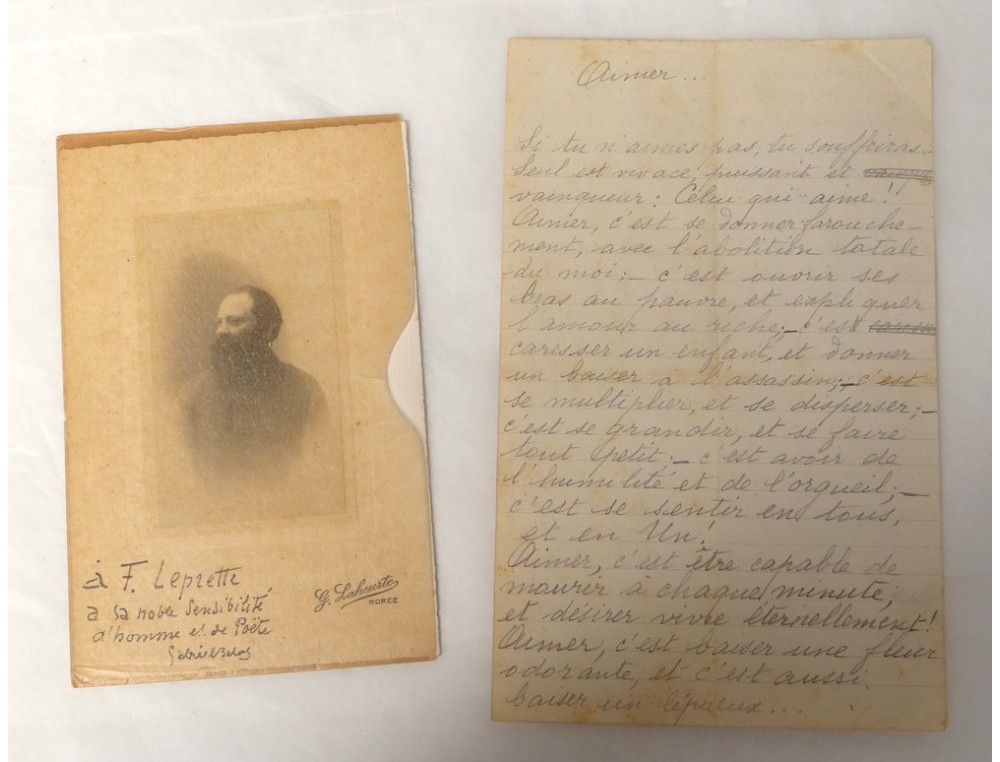 à F. Leprette
a sa noble Sensibilité
d'homme et de Poëte
Gabriel Belot
G. Laheurte
MOREZ
Aimer...
Si tu n'aimes pas, tu souffriras...
Seul est vivace, puissant et
vainqueur : Celui qui aime !
Aimer, c'est se donner farouche-
ment, avec l'abolition totale
du moi ; – c'est ouvrir ses
bras au pauvre, et expliquer
l'amour au riche ; – c'est
caresser un enfant, et donner
un baiser a l'assassin ; – c'est
se multiplier, et se disperser ; –
c'est se grandir, et se faire
tout petit ; – c'est avoir de
l'humilité et de l'orgueil ; –
c'est se sentir en tous,
et en Un !
Aimer, c'est être capable de
mourir à chaque minute,
et désirer vivre éternellement !
Aimer, c'est baiser une fleur
odorante, et c'est aussi
baiser un lépreux...